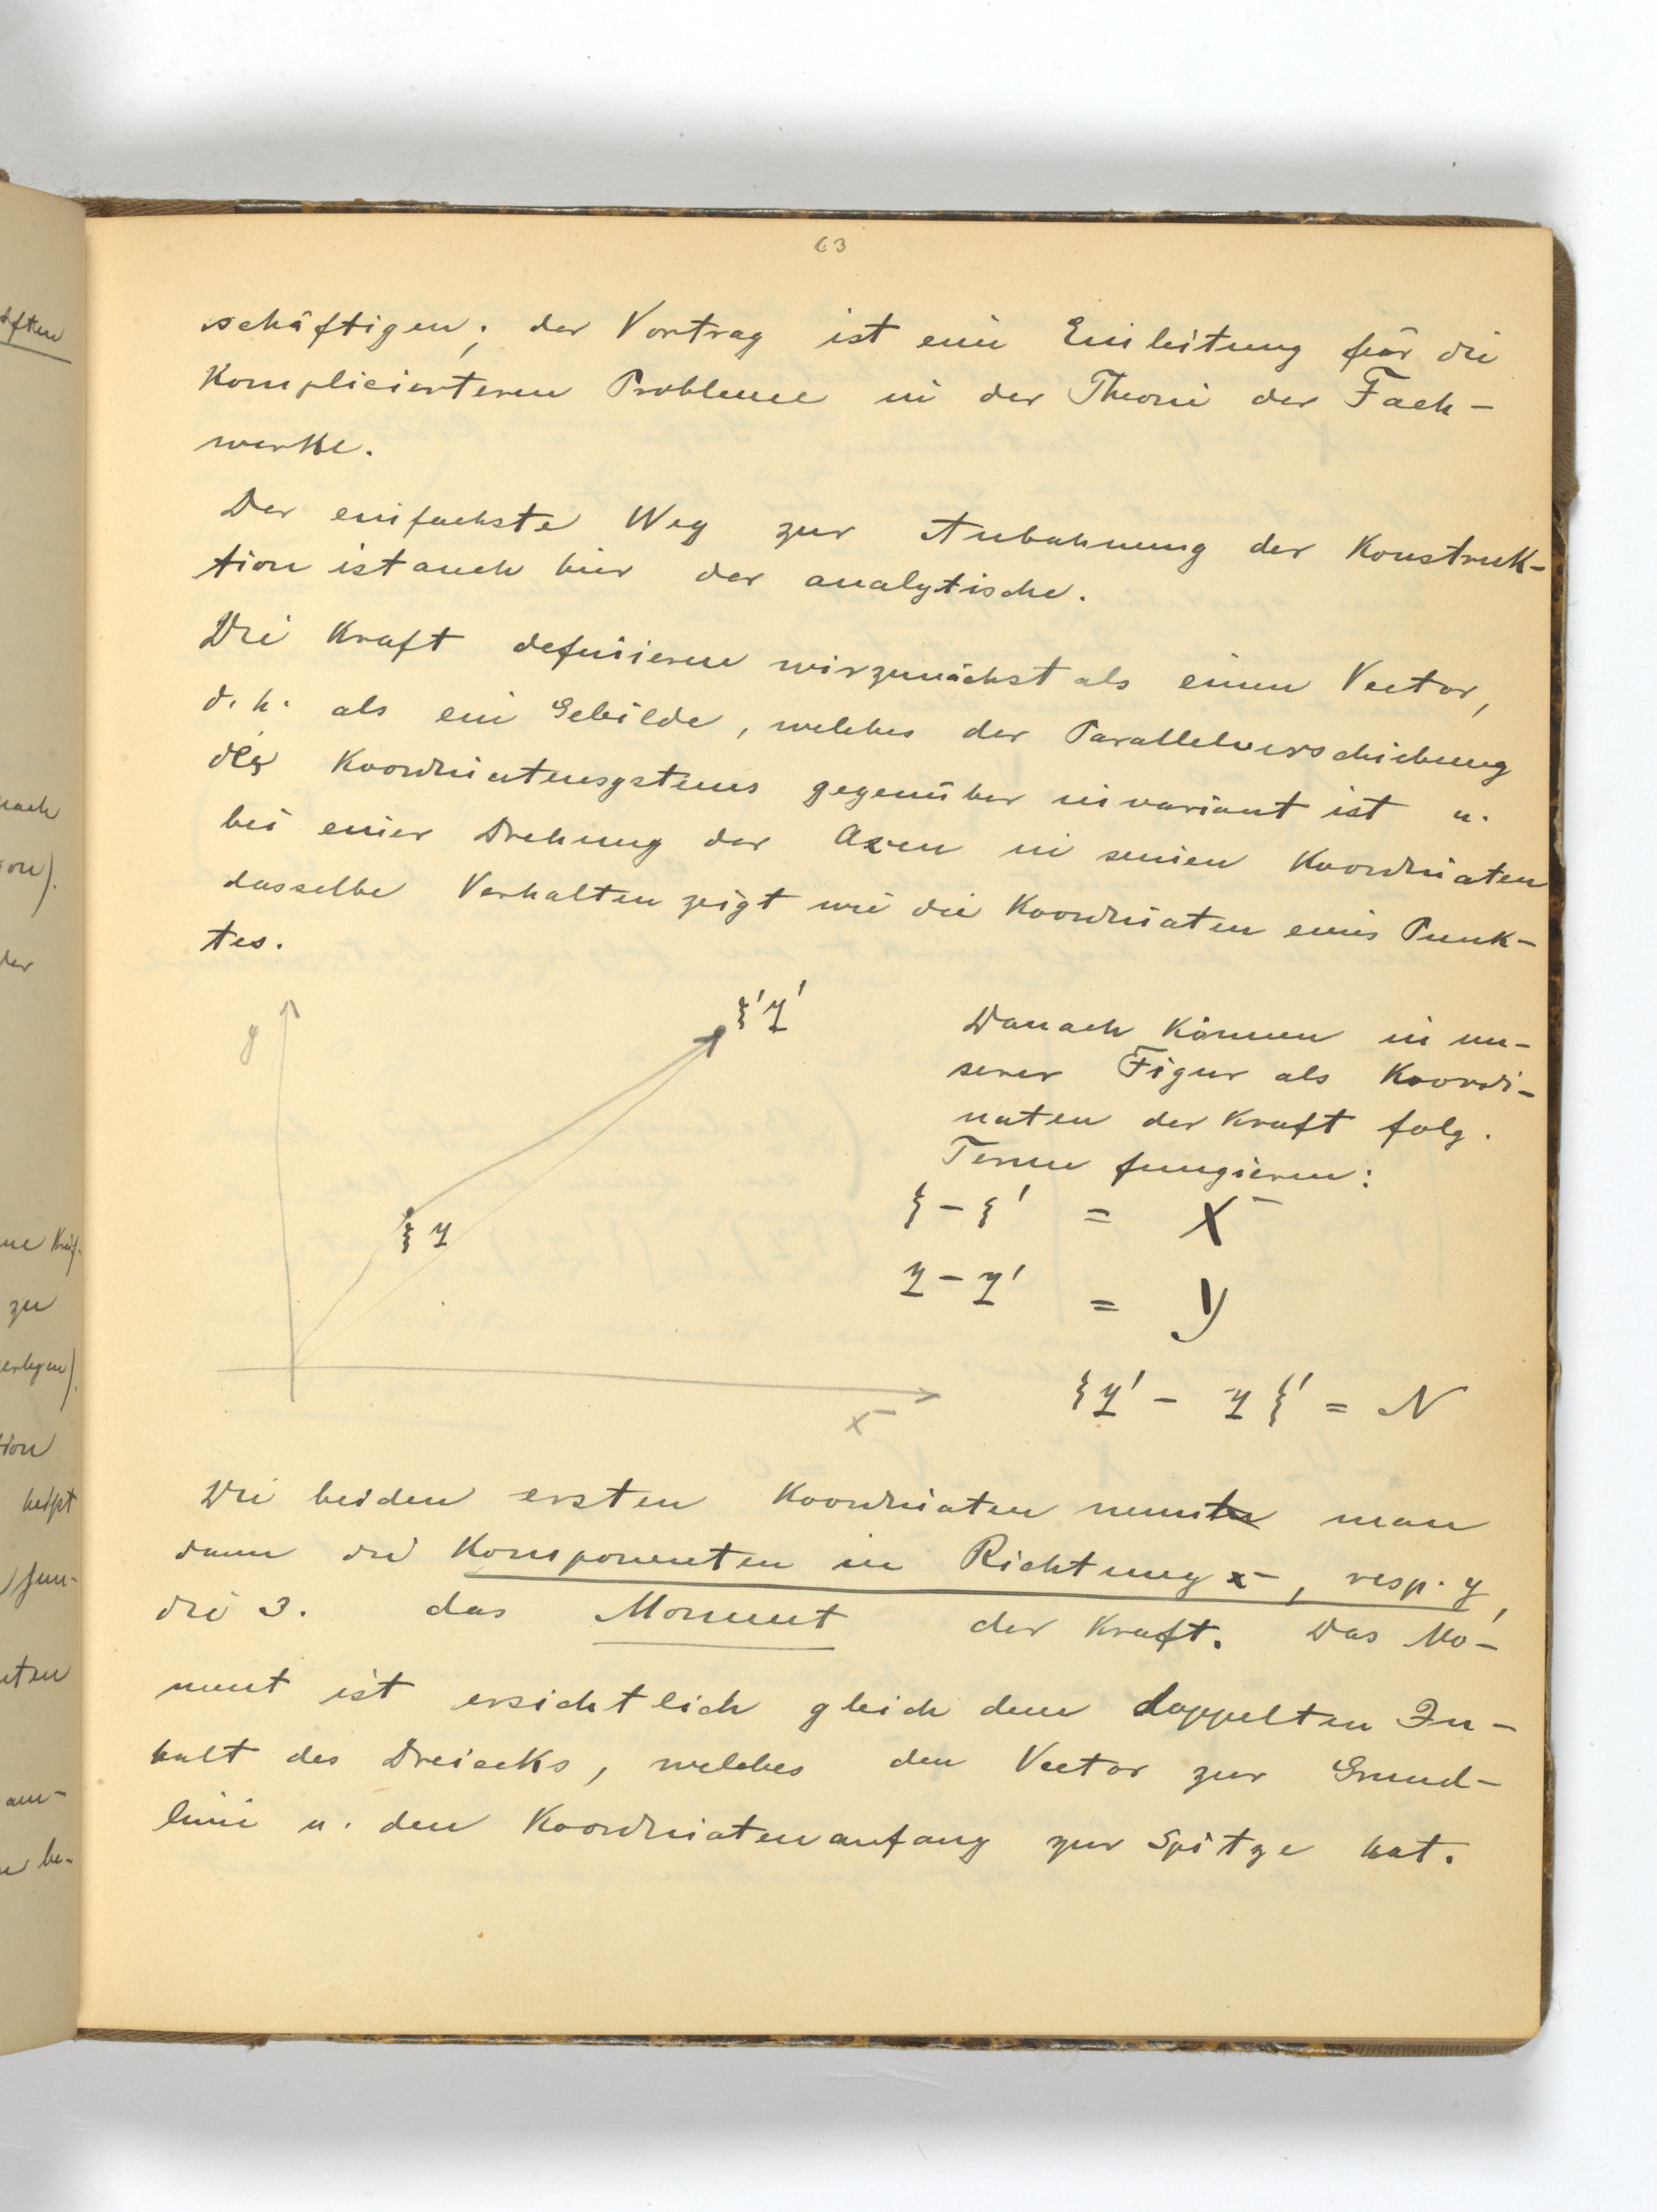 63
schäftigen; der Vortrag ist eine Einleitung für die
komplicierteren Probleme in der Theorie der Fach-
werke.
Der einfachste Weg zur Anbahnung der Konstruk-
tion ist auch hier der analytische.
Die Kraft definieren wir zunächst als einen Vector,
d. h. als ein Gebilde, welches der Parallelverschiebung
des Koordinatensystems gegenüber invariant ist u.
bei einer Drehung der Axen in seinen Koordinaten
dasselbe Verhalten zeigt wie die Koordinaten eines Punk-
tes.
y
ξ'η'
ξ η
x
Danach können in un-
serer Figur als Koordi-
naten der Kraft folg.
Terme fungieren:
ξ - ξ' = X
η - η' = Y
ξη' - ηξ' = N
Die beiden ersten Koordinaten nennt man
dann die Komponenten in Richtung x, resp. y,
die 3. das Moment der Kraft. Das Mo-
ment ist ersichtlich gleich dem doppelten In-
halt des Dreiecks, welches den Vector zur Grund-
linie u. den Koordinatenanfang zur Spitze hat.
nach
on).
der
zu
tion
heißt
am-
be-